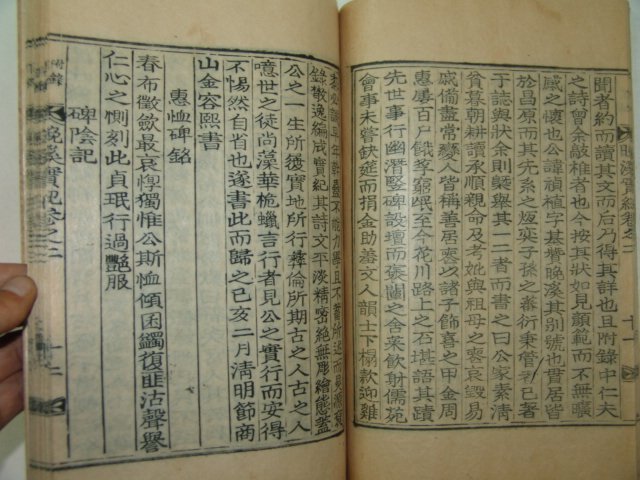 晩溪實紀卷之二
十一
聞者約而讀其文而后乃得其詳也且附錄中仁夫
之詩曾余敲椎者也今按其狀如見顔範而不無曠
感之懷也公諱禎植字 賛晩溪其別號也貫居皆
於昌原而其先系之 奕子孫之蕃衍秉管 已著
于誌與狀余則 擧其一二者而書之曰公家素淸
貧暮耕讀承順親命及考妣與祖母之喪哀毁易
戚備盡常變人皆稱善居喪以諸子飾喜之甲金周
惠屢百戶餓莩窮氓至今花川路上之石堪語其蹟
先世事行幽潛竪碑設壇而 闡之舍菜飮射儒苑
會事未嘗缺筵而捐金助善文人韻士下榻款迎雖
公之一生所 實地所行彛倫所期古之人古之人
噫世之徒尚藻華梔蠟言行者見公之實行而安得
不惕然自省也遂書此而歸之己亥二月淸明節商
山金容熙書
惠恤碑銘
春布徵斂最哀惸獨惟公斯恤傾囷蠲復匪沽聲譽
仁心之惻刻此貞珉行過艶服
碑陰記
附錄
晩溪實紀卷之二
十二